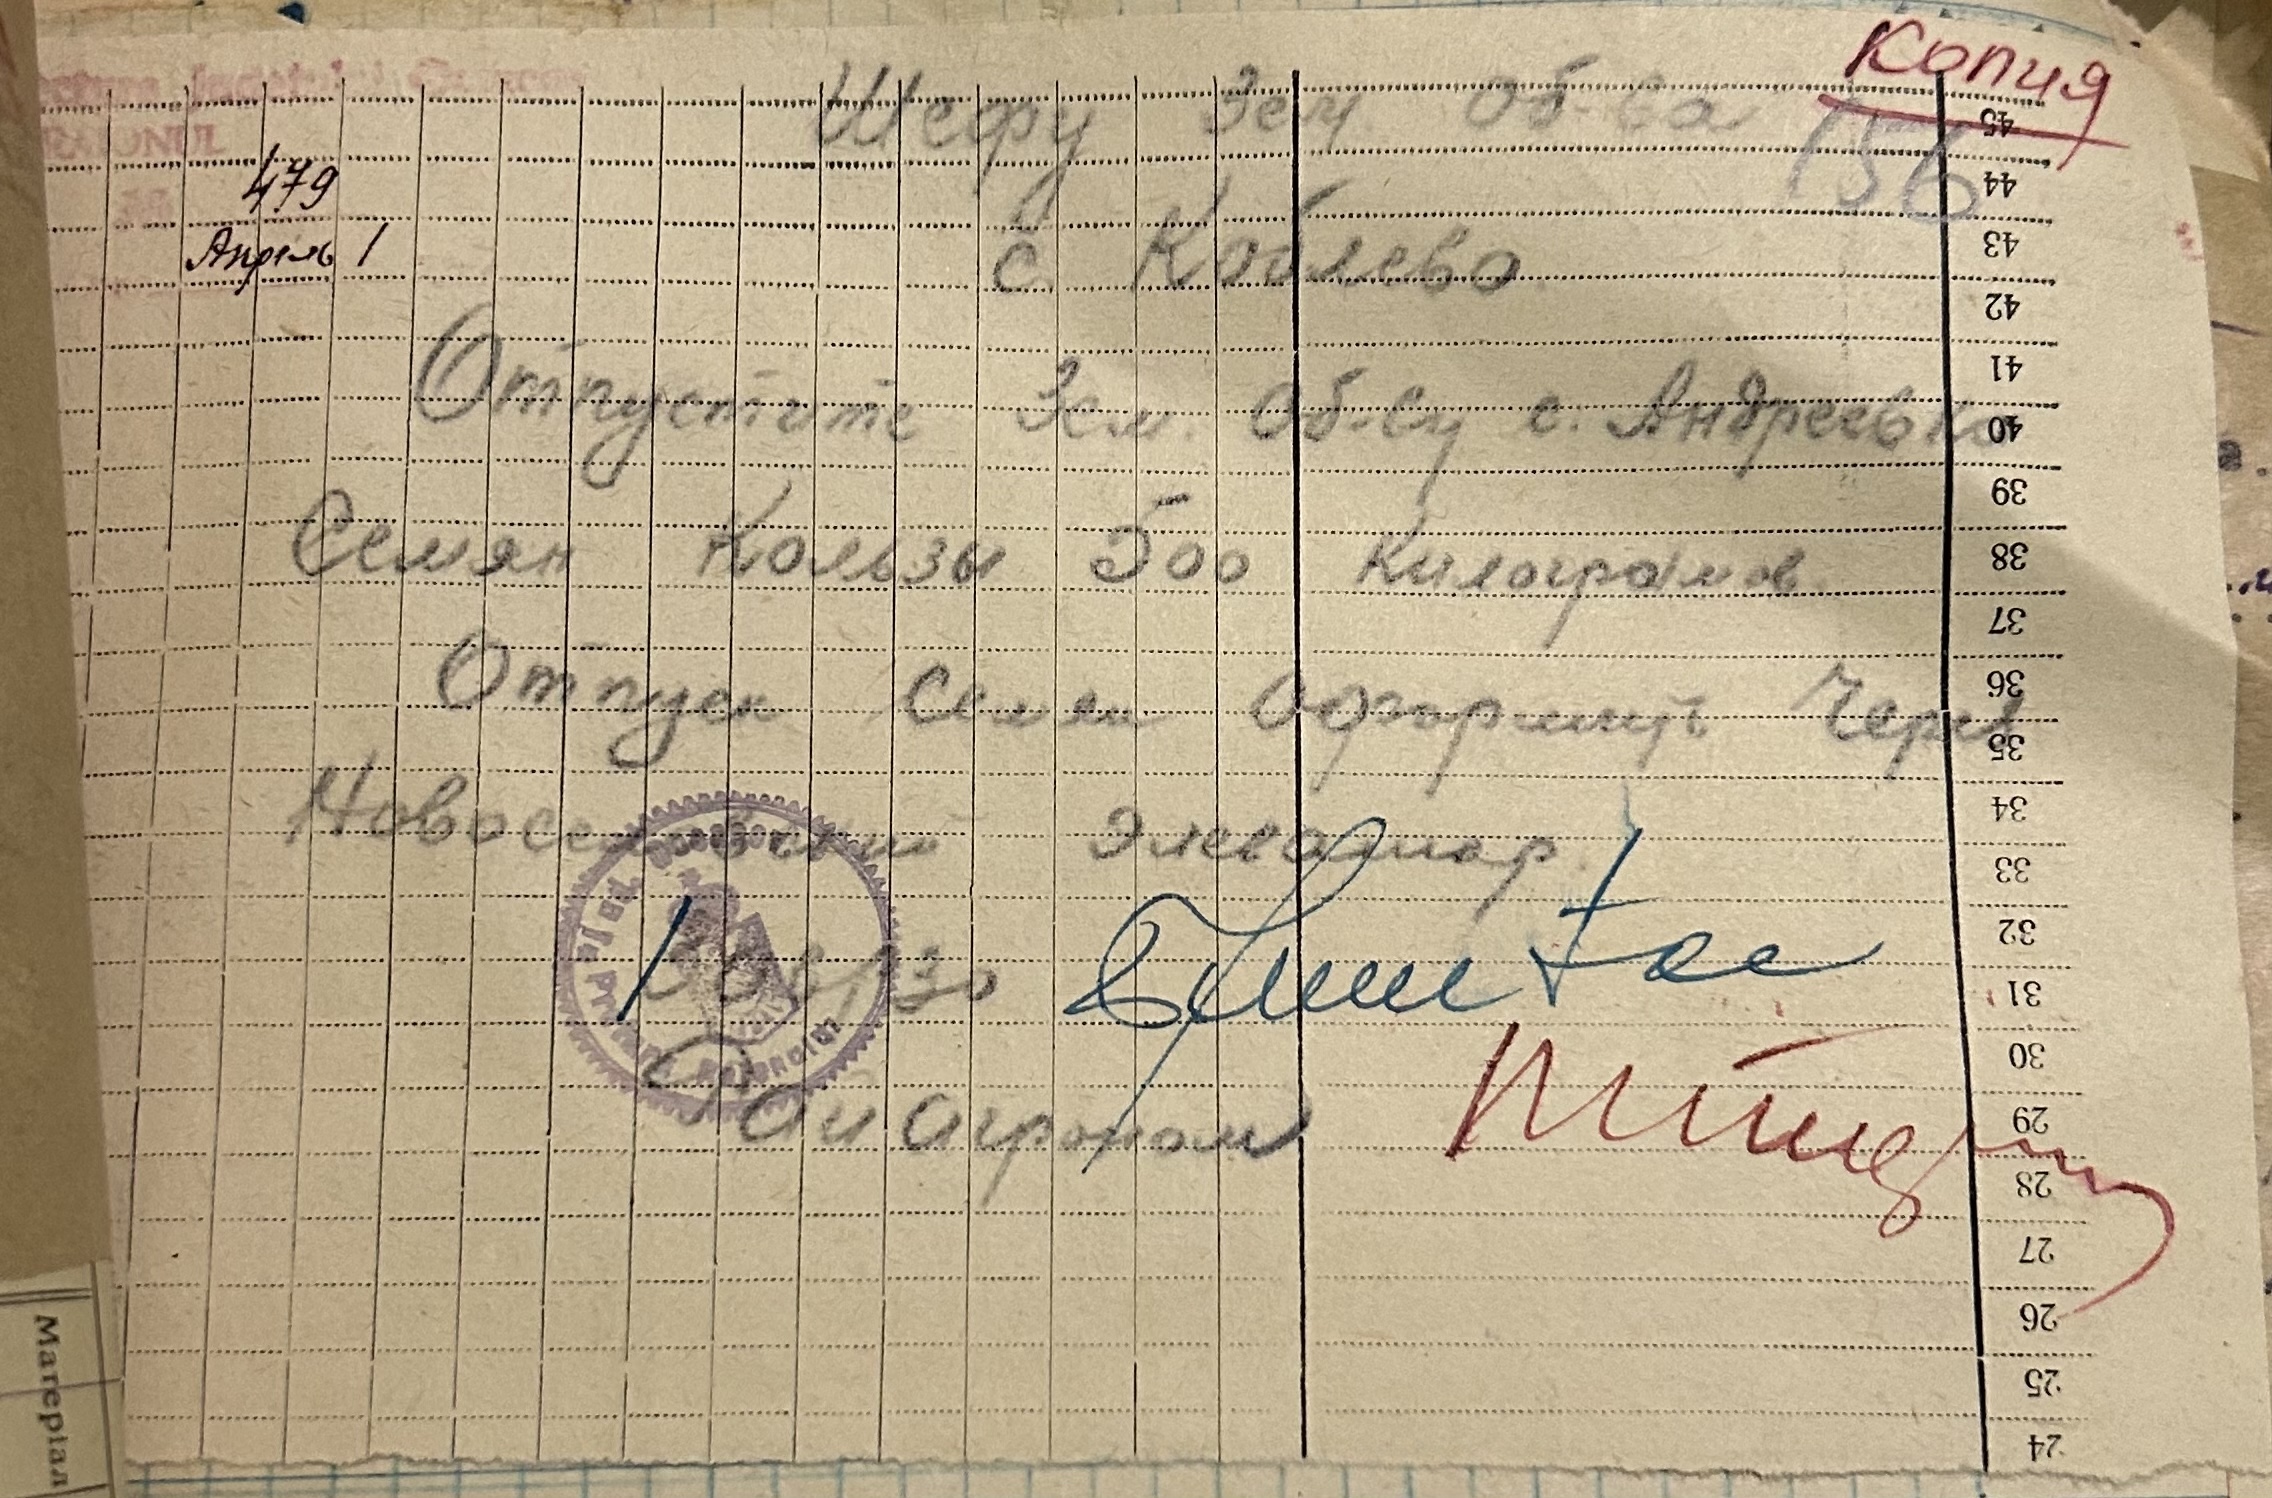 Копия
Шефу Зем. Об-ва
156
479
Апрель 1
с. Коблево
Отпустите Зем. Об-ву с. Андреевка
Семян Кользы 500 килограмов.
Отпуск Семян оформить Через
элеватор.
Рай Агроном
45
44
43
42
41
40
39
38
37
36
35
34
33
32
31
30
29
28
27
26
25
24
Матеріал